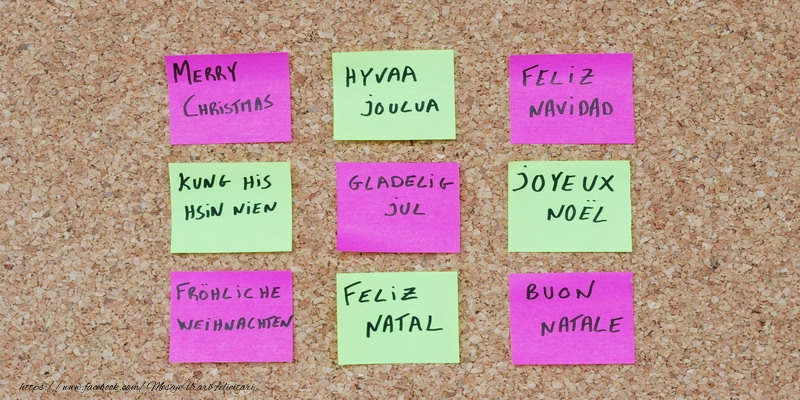 MERRY
CHRISTMAS
HYVAA
JOULUA
FELIZ
NAVIDAD
KUNG HIS
HSIN NIEN
GLADELIG
JUL
JOYEUX
NOËL
FRÖHLICHE
WEIHNACHTEN
FELIZ
NATAL
BUON
NATALE
https://www.facebook.com/MesajeUrariFelicitari